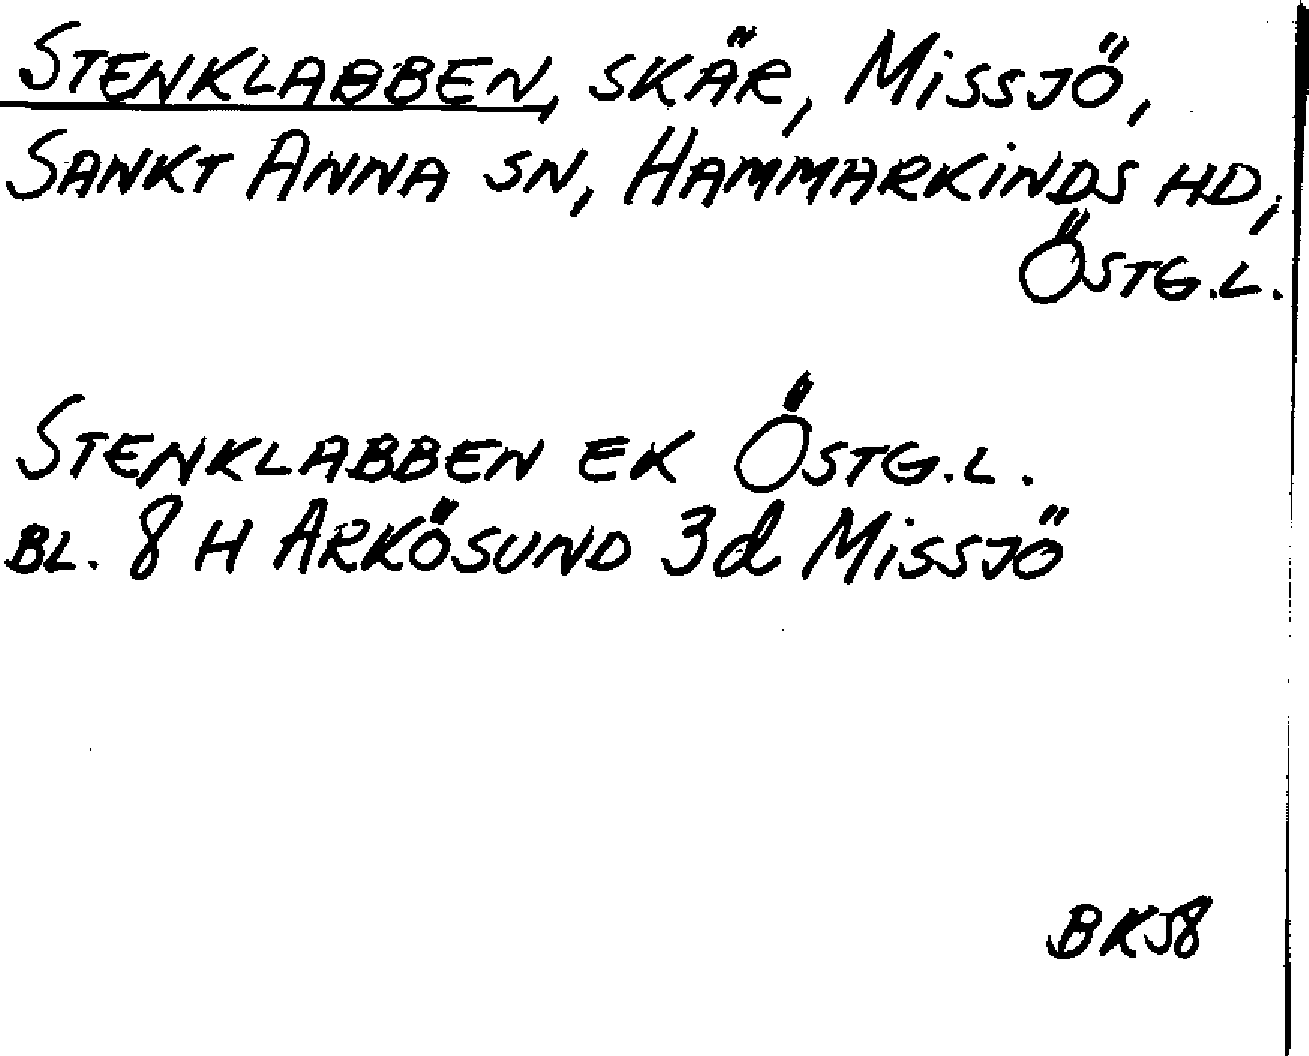 STENKLABBEN, SKÄR, MISSJÖ,
SANKT ANNA SN, HAMMARKINDS HD,
ÖSTG.L.
STENKLABBEN EK ÖSTG.L.
BL. 8 H ARKÖSUND 3d MISSJÖ
BK58